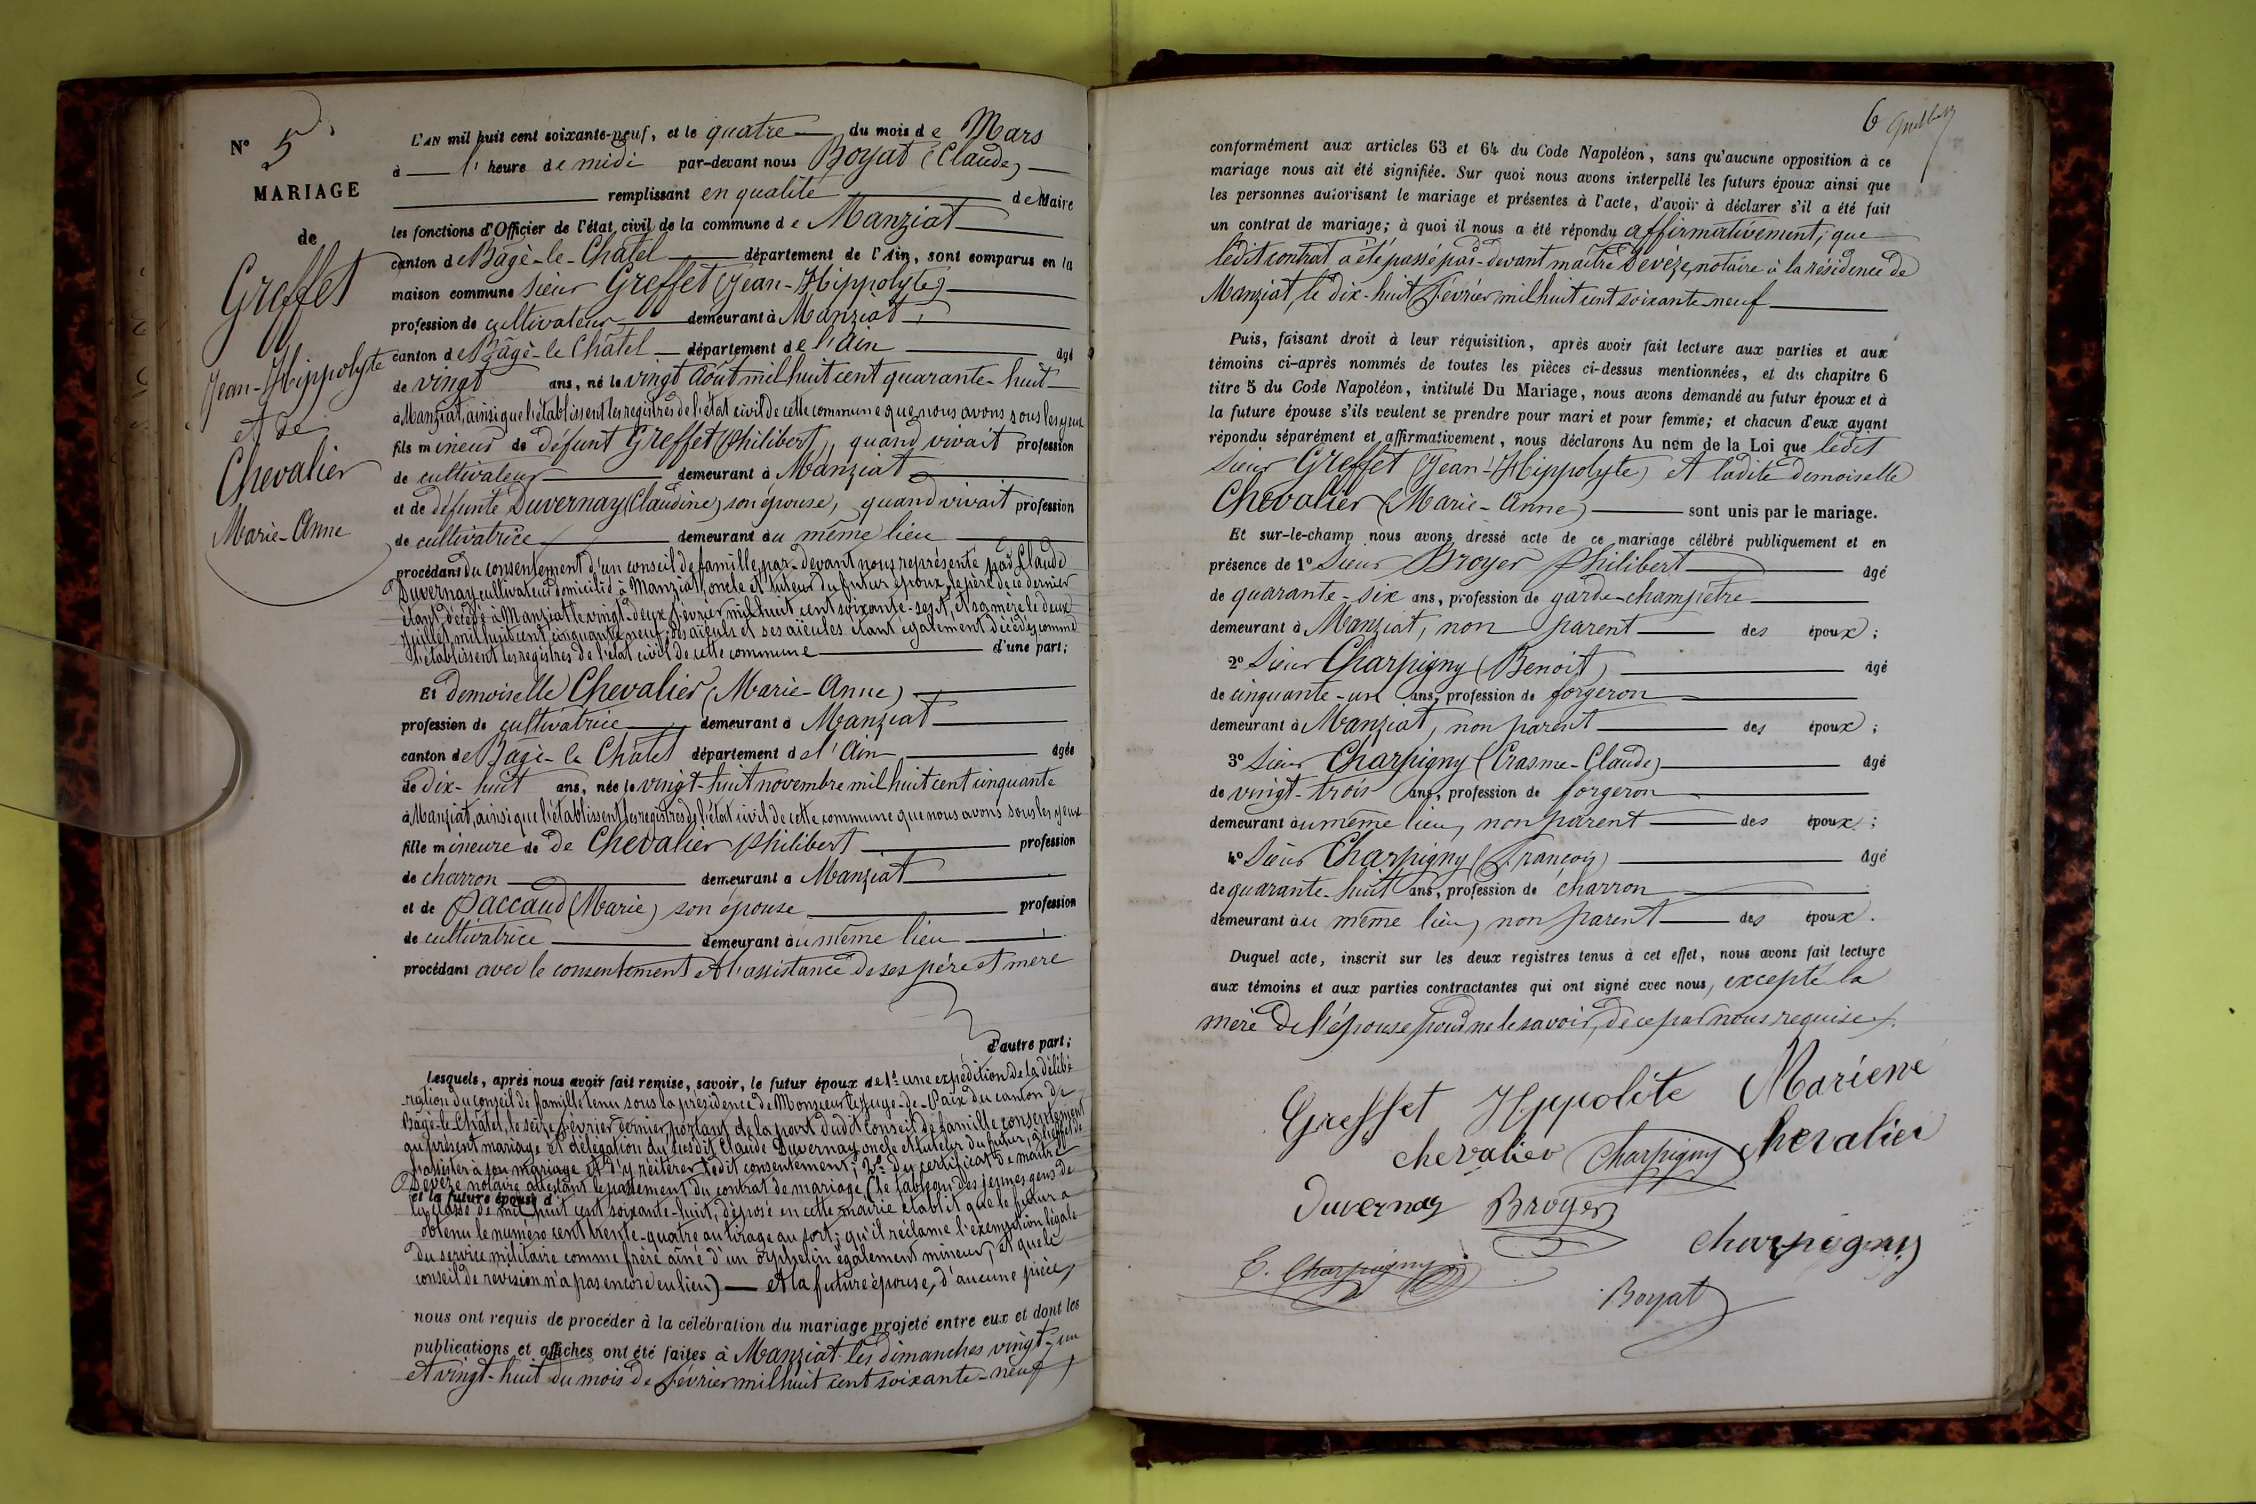 N° 5
MARIAGE
de
Greffet
Jean-Hippolyte
et de
Chevalier
Marie-Anne
L'AN mil huit cent soixante-neuf, et le quatre du mois de Mars
à l'heure de midi par-devant nous Boyat (Claude)
remplissant en qualité de Maire
les fonctions d'Officier de l'état civil de la commune de Manziat
canton de Bâgè-le-Châtel département de l'Ain, sont comparus en la
maison commune sieur Greffet (Jean-Hippolyte)
profession de cultivateur demeurant à Manziat,
canton de Bâgè-le Châtel département de l'Ain âgé
de vingt ans, né le vingt Août mil huit cent quarante-huit
à Manziat, ainsi que l'établissent les registres de l'état civil de cette commune que nous avons sous les yeux
fils mineur de défunt Greffet (Philibert), quand vivait profession
de cultivateur demeurant à Manziat
et de défunte Duvernay (Claudine) son épouse, quand vivait profession
de cultivatrice demeurant au même lieu
procédant du consentement d'un conseil de famille, par-devant nous représenté par Claude
Duvernay cultivateur domicilié à Manziat, oncle et tuteur du futur époux, le père de ce dernier
étant décédé à Manziat le vingt-deux février mil huit cent soixante-sept, et sa mère le deux
Juillet mil huit cent cinquante neuf; ses aïeuls et ses aïeules étant également décédés comme
l'établissent les registres de l'état civil de cette commune d'une part;
Et demoiselle Chevalier (Marie-Anne)
profession de cultivatrice demeurant à Manziat
canton de Bâgè-le Châtel département de l'Ain âgée
de dix-huit ans, née le vingt-huit novembre mil huit cent cinquante
à Manziat, ainsi que l'établissent les registres de l'état civil de cette commune que nous avons sous les yeux
fille mineure de de Chevalier Philibert profession
de charron demeurant à Manziat
et de Paccaud (Marie) son épouse profession
de cultivatrice demeurant au même lieu
procédant avec le consentement et l'assistance de ses père et mère
d'autre part;
Lesquels, après nous avoir fait remise, savoir, le futur époux de 1° une expédition de la délibé-
-ration du conseil de famille tenu sous la présidence de Monsieur le Juge-de-Paix du canton de
Bâgè-le-Châtel, le seize février dernier, portant de la part dudit conseil de famille consentement
au présent mariage et délégation du susdit Claude Duvernay, oncle et tuteur du futur, à l'effet de
l'assister à son mariage et d'y réitérer ledit consentement; 2° du certificat de maître
Devèze notaire attestant le passement du contrat de mariage (le tableau des jeunes gens de
et la future épouse d
la classe de mil huit cent soixante-huit, déposé en cette mairie établit que le futur a
obtenu le numéro cent trente-quatre au tirage au sort; qu'il réclame l'exemption légale
du service militaire comme frère aîné d'un orphelin également mineur, et que le
conseil de revision n'a pas encore eu lieu) et la future épouse, d'aucune pièce,
nous ont requis de procéder à la célébration du mariage projeté entre eux et dont les
publications et affiches ont été faites à Manziat les dimanches vingt-un
et vingt-huit du mois de février mil huit cent soixante-neuf
6
conformément aux articles 63 et 64 du Code Napoléon, sans qu'aucune opposition à ce
mariage nous ait été signifiée. Sur quoi nous avons interpellé les futurs époux ainsi que
les personnes autorisant le mariage et présentes à l'acte, d'avoir à déclarer s'il a été fait
un contrat de mariage; à quoi il nous a été répondu affirmativement, que
ledit contrat a été passé par-devant maître Devèze, notaire à la résidence de
Manziat, le dix-huit février mil huit cent soixante-neuf
Puis, faisant droit à leur réquisition, après avoir fait lecture aux parties et aux
témoins ci-après nommés de toutes les pièces ci-dessus mentionnées, et du chapitre 6
titre 5 du Code Napoléon, intitulé Du Mariage, nous avons demandé au futur époux et à
la future épouse s'ils veulent se prendre pour mari et pour femme; et chacun d'eux ayant
répondu séparément et affirmativement, nous déclarons Au nom de la Loi que ledit
sieur Greffet (Jean-Hippolyte) et ladite demoiselle
Chevalier (Marie-Anne) sont unis par le mariage.
Et sur-le-champ nous avons dressé acte de ce mariage célébré publiquement et en
présence de 1° Sieur Broyer Philibert âgé
de quarante-six ans, profession de garde-champêtre
demeurant à Manziat, non parent des époux;
2° Sieur Charpigny (Benoit) âgé
de cinquante-un ans, profession de forgeron
demeurant à Manziat, non parent des époux;
3° Sieur Charpigny (Erasme-Claude) âgé
de vingt-trois ans, profession de forgeron
demeurant au même lieu, non parent des époux;
4° Sieur Charpigny (François) âgé
de quarante-huit ans, profession de charron
demeurant au même lieu, non parent des époux.
Duquel acte, inscrit sur les deux registres tenus à cet effet, nous avons fait lecture
aux témoins et aux parties contractantes qui ont signé avec nous, excepté la
mère de l'épouse pour ne le savoir, de ce par nous requise.
Greffet Hppolite Mariene
chevalier Charpigny chevalier
Duvernay Broyer
Charpigny
C. Charpigny
Boyat